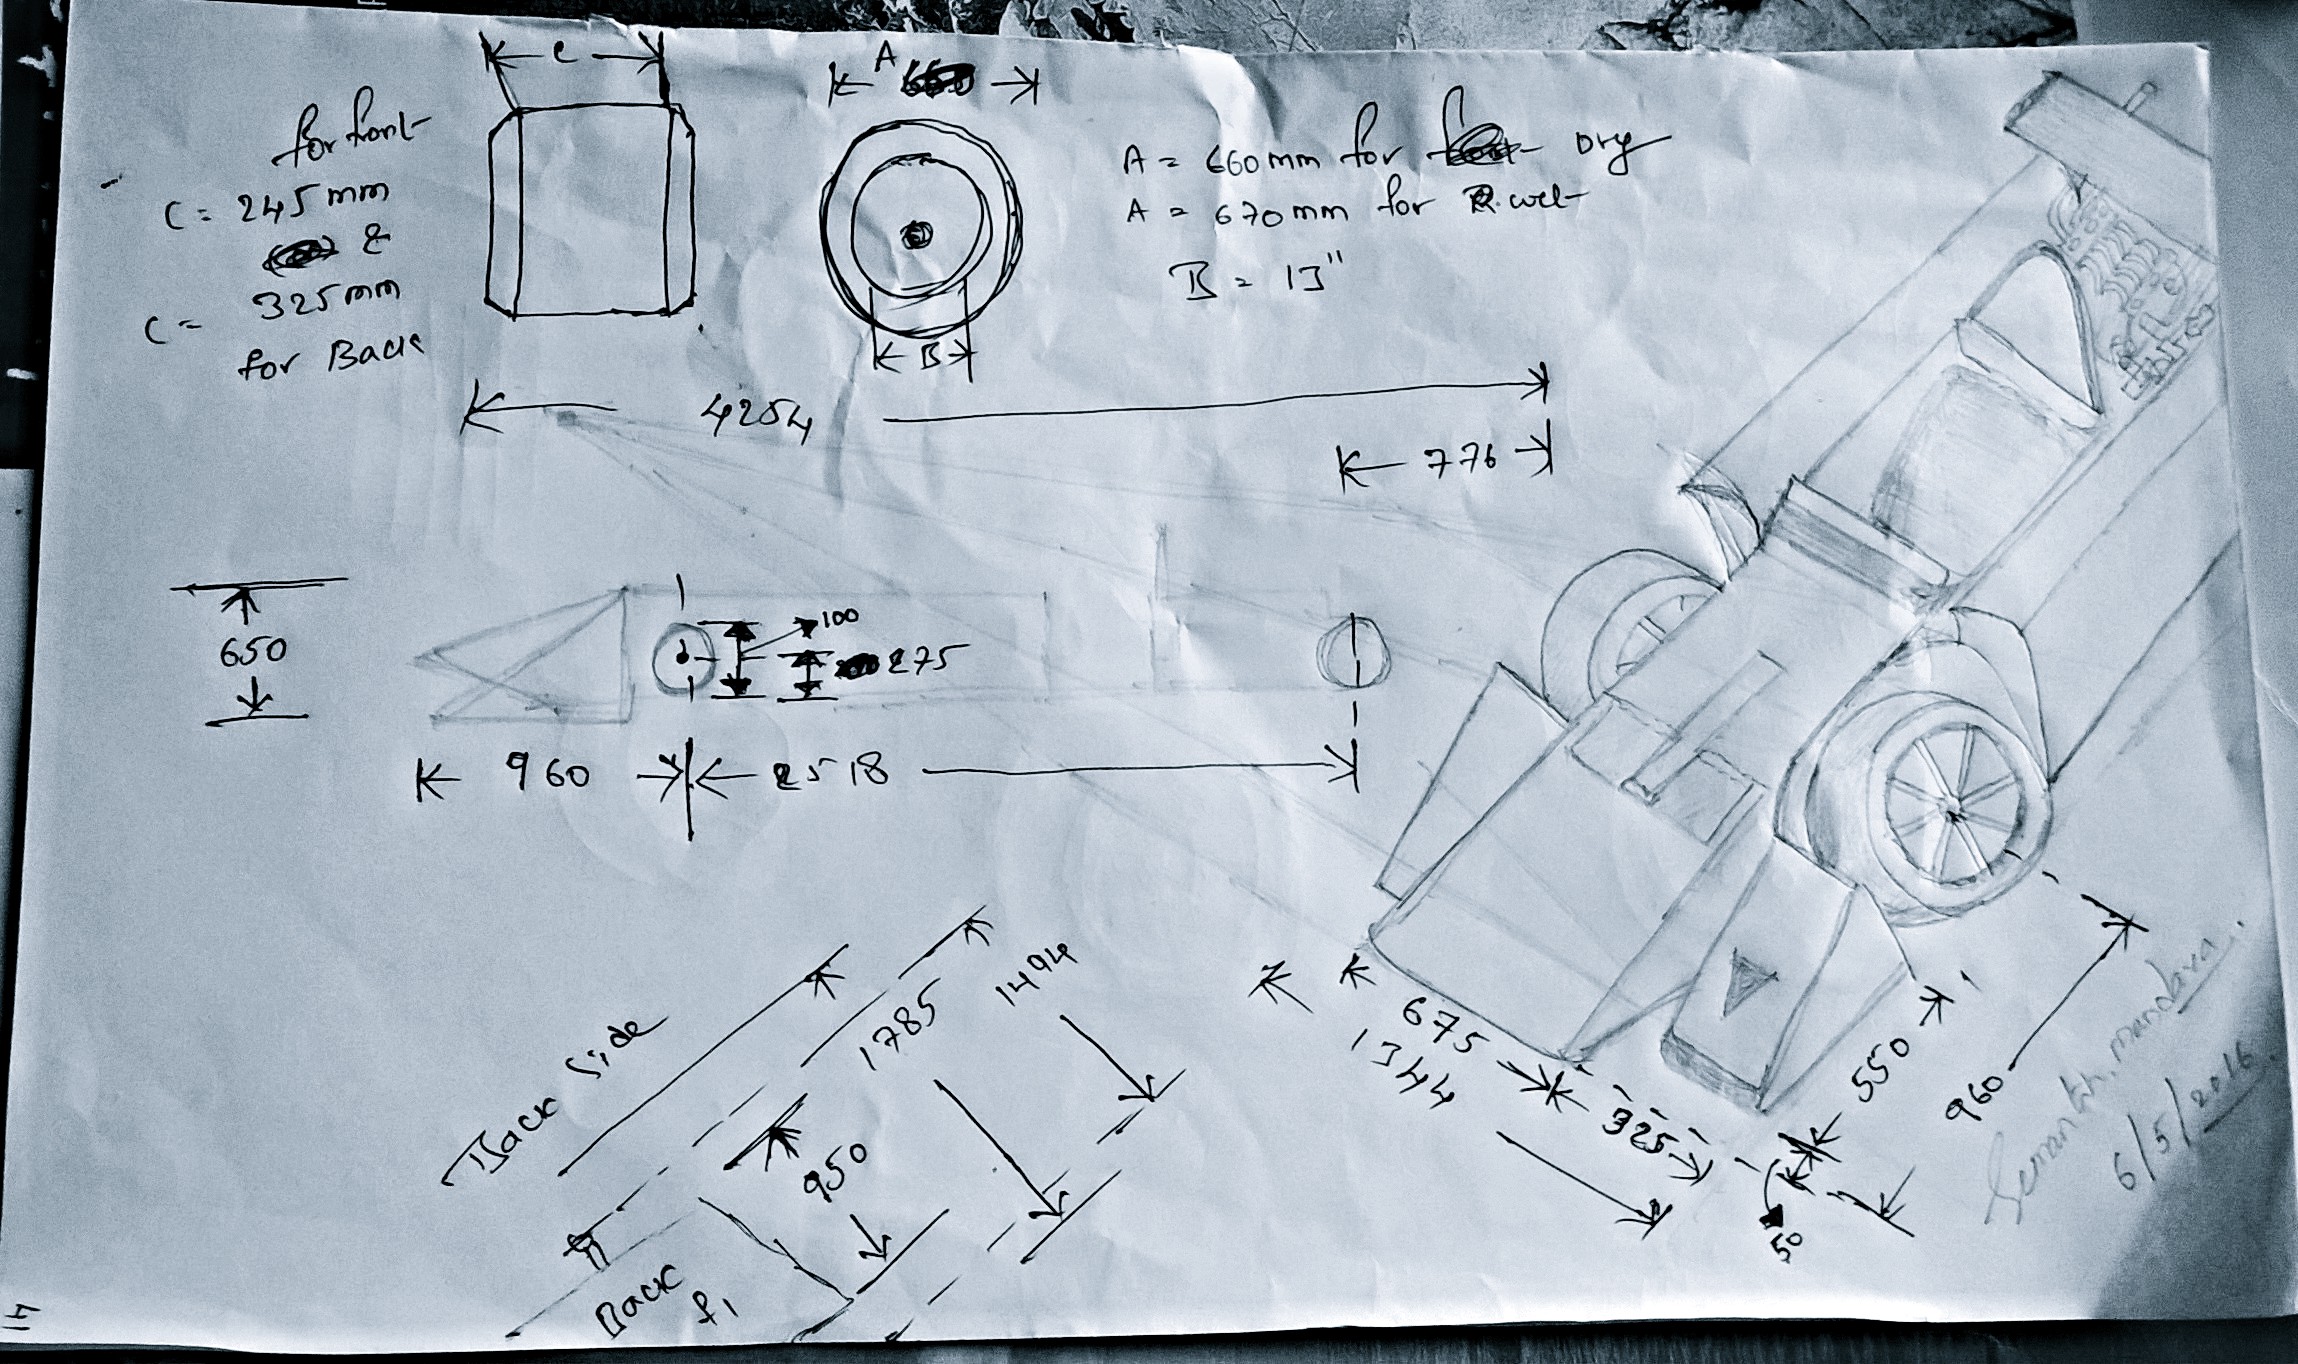 C
A
for front
C = 245 mm
&
C = 325 mm
for Back
A = 660 mm for Dry
A = 670 mm for wet
B = 13"
B
4254
776
650
100
275
960
2518
Back Side
1785
1494
950
Back
675
1344
325
550
960
50
6/5/2016.